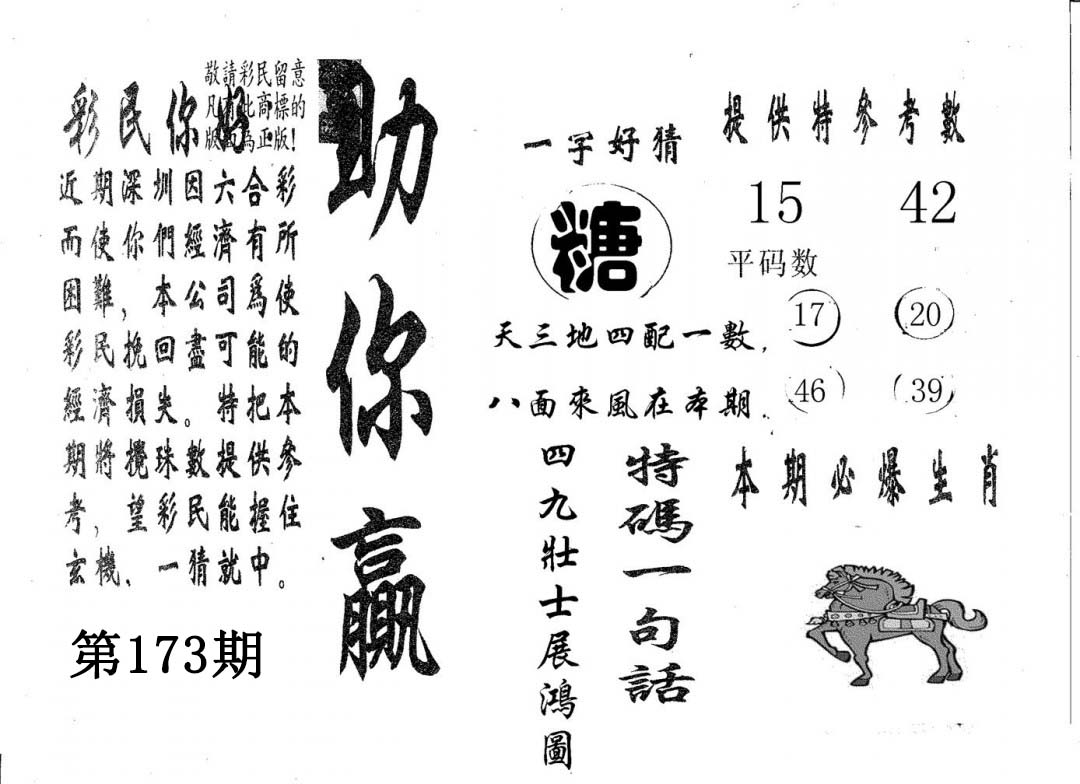 敬請彩民留意
凡有此商標的
版面為正版!
彩民你好
近期深圳因六合彩
而使你們經濟有所
困難，本公司爲使
彩民挽回盡可能的
經濟損失。特把本
期將攪珠數提供參
考，望彩民能握住
玄機、一猜就中。
第173期
助你贏
一字好猜
糖
天三地四配一數，
八面來風在本期．
四九壯士展鴻圖
特碼一句話
提供特參考數
15 42
平码数
17 20
46 39
本期必爆生肖